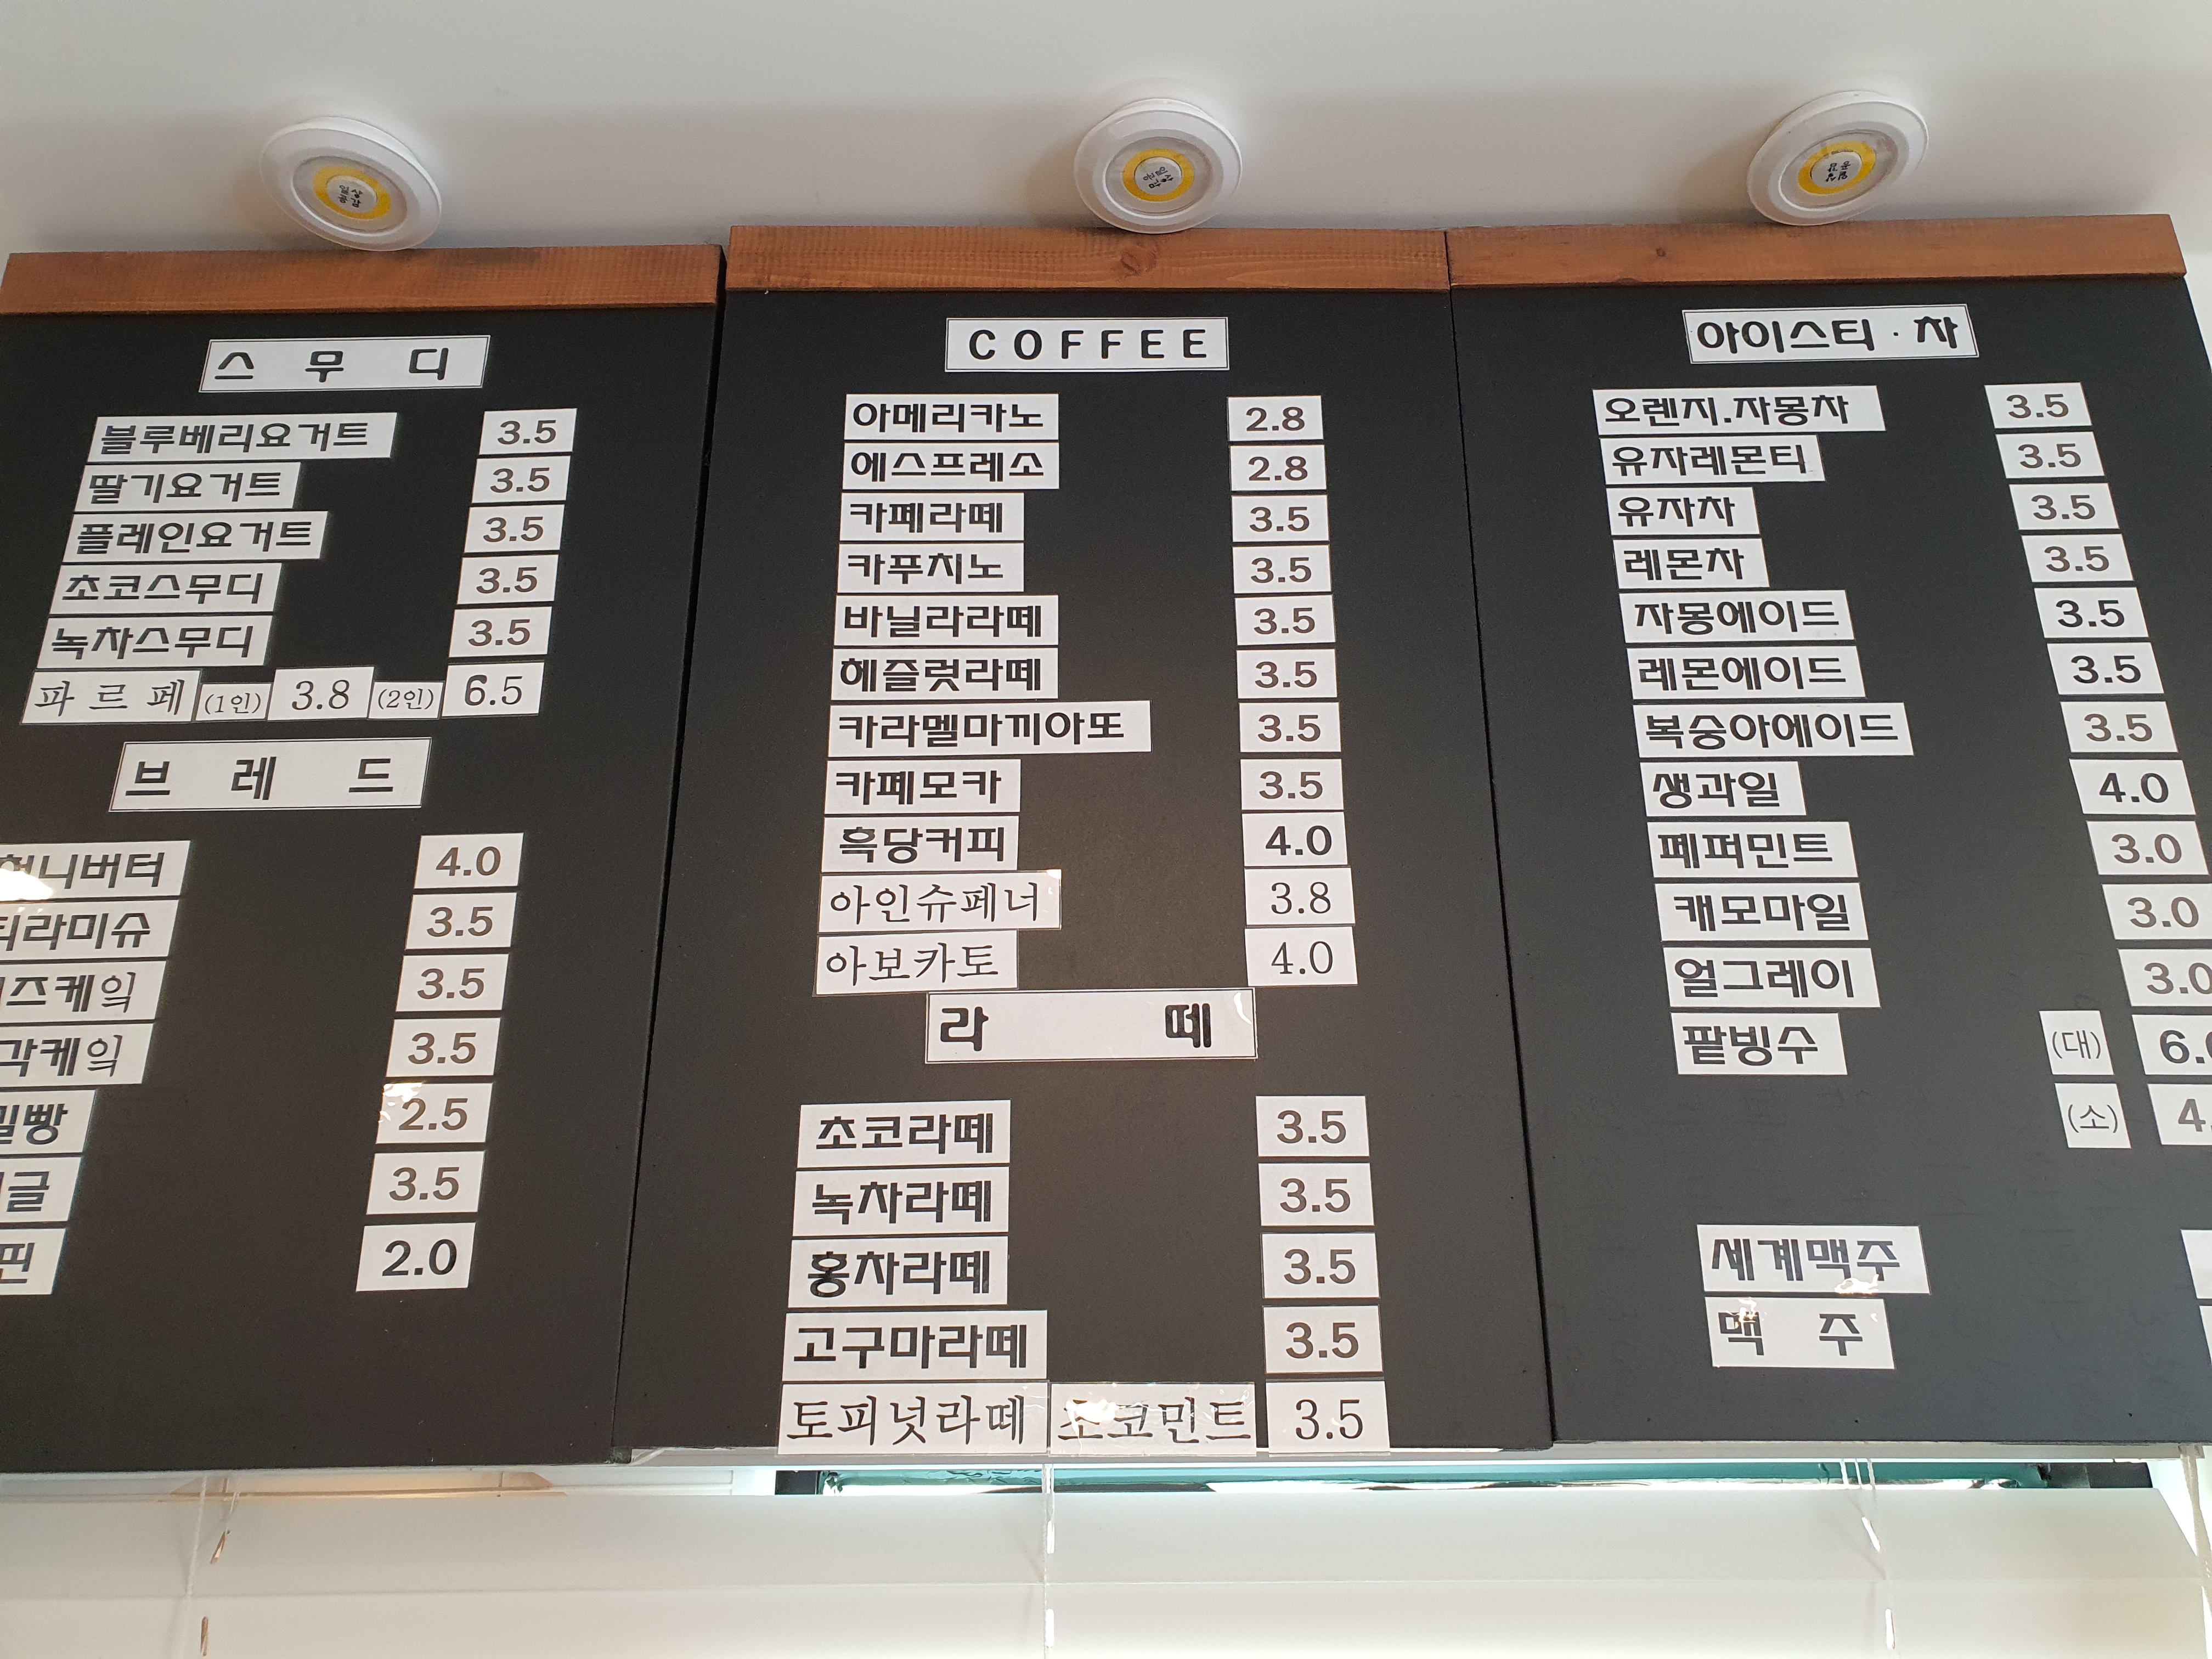 스 무 디
블루베리요거트 3.5
딸기요거트 3.5
플레인요거트 3.5
초코스무디 3.5
녹차스무디 3.5
파르페 (1인) 3.8 (2인) 6.5
브 레 드
허니버터 4.0
티라미슈 3.5
즈케익 3.5
각케익 3.5
밀빵 2.5
글 3.5
핀 2.0
COFFEE
아메리카노 2.8
에스프레소 2.8
카페라떼 3.5
카푸치노 3.5
바닐라라떼 3.5
헤즐럿라떼 3.5
카라멜마끼아또 3.5
카페모카 3.5
흑당커피 4.0
아인슈페너 3.8
아보카토 4.0
라 떼
초코라떼 3.5
녹차라떼 3.5
홍차라떼 3.5
고구마라떼 3.5
토피넛라떼 초코민트 3.5
아이스티·차
오렌지.자몽차 3.5
유자레몬티 3.5
유자차 3.5
레몬차 3.5
자몽에이드 3.5
레몬에이드 3.5
복숭아에이드 3.5
생과일 4.0
페퍼민트 3.0
캐모마일 3.0
얼그레이 3.0
팥빙수 (대) 6.
(소) 4.
세계맥주
맥 주